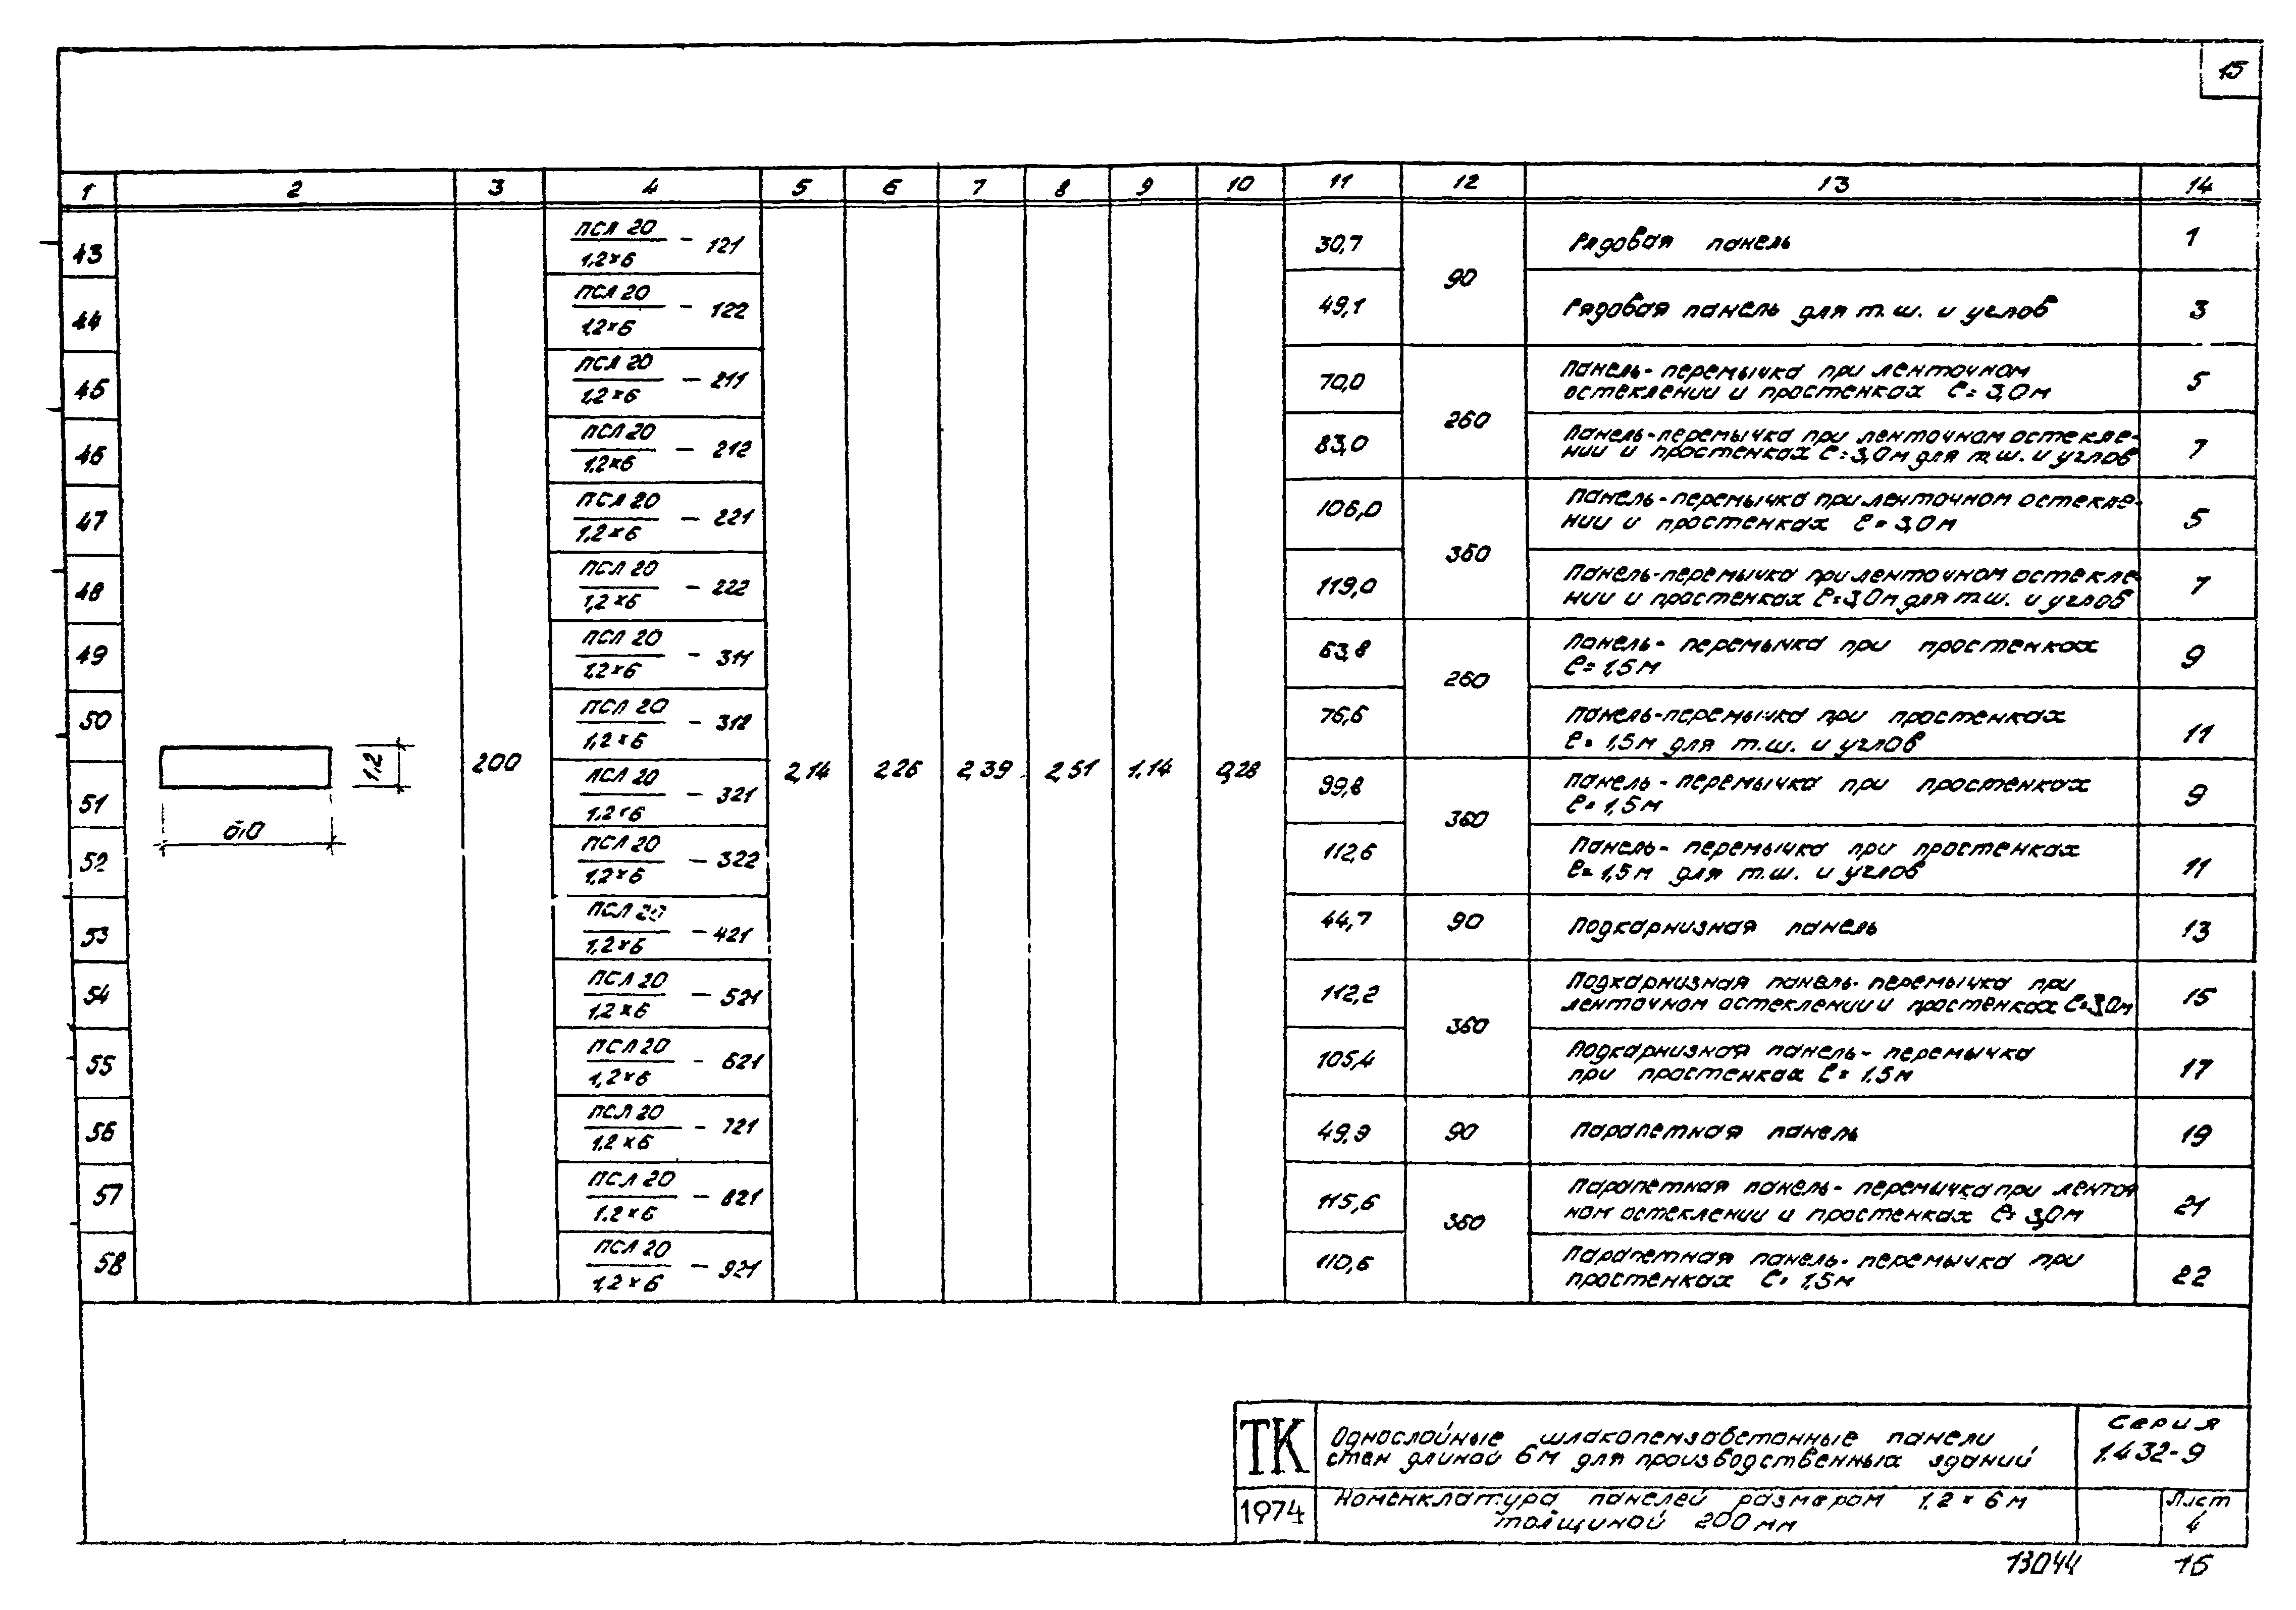 15
1 2 3 4 5 6 7 8 9 10 11 12 13 14
43 ПСЛ 20 / 1,2×6 – 121 30,7 90 Рядовая панель 1
44 ПСЛ 20 / 1,2×6 – 122 49,1 Рядовая панель для т.ш. и углов 3
45 ПСЛ 20 / 1,2×6 – 211 70,0 260 Панель-перемычка при ленточном
остеклении и простенках ℓ=3,0м 5
46 ПСЛ 20 / 1,2×6 – 212 83,0 Панель-перемычка при ленточном остекле-
нии и простенках ℓ=3,0м для т.ш. и углов 7
47 ПСЛ 20 / 1,2×6 – 221 106,0 360 Панель-перемычка при ленточном остекле-
нии и простенках ℓ=3,0м 5
48 ПСЛ 20 / 1,2×6 – 222 119,0 Панель-перемычка при ленточном остекле
нии и простенках ℓ=3,0м для т.ш. и углов 7
49 ПСЛ 20 / 1,2×6 – 311 63,8 260 Панель-перемычка при простенках
ℓ=1,5м 9
50 ПСЛ 20 / 1,2×6 – 312 76,6 Панель-перемычка при простенках
ℓ=1,5м для т.ш. и углов 11
1,2 200 2,14 2,26 2,39 2,51 1,14 0,28
51 ПСЛ 20 / 1,2×6 – 321 99,8 360 Панель-перемычка при простенках
ℓ=1,5м 9
6,0
52 ПСЛ 20 / 1,2×6 – 322 112,6 Панель-перемычка при простенках
ℓ=1,5м для т.ш. и углов 11
53 ПСЛ 20 / 1,2×6 – 421 44,7 90 Подкарнизная панель 13
54 ПСЛ 20 / 1,2×6 – 521 112,2 360 Подкарнизная панель-перемычка при
ленточном остеклении и простенках ℓ=3,0м 15
55 ПСЛ 20 / 1,2×6 – 621 105,4 Подкарнизная панель-перемычка
при простенках ℓ=1,5м 17
56 ПСЛ 20 / 1,2×6 – 721 49,9 90 Парапетная панель 19
57 ПСЛ 20 / 1,2×6 – 821 115,6 360 Парапетная панель-перемычка при ленточ
ном остеклении и простенках ℓ=3,0м 21
58 ПСЛ 20 / 1,2×6 – 921 110,6 Парапетная панель-перемычка при
простенках ℓ=1,5м 22
ТК Однослойные шлакопемзабетонные панели
стен длиной 6м для производственных зданий
Серия
1.432-9
1974 Номенклатура панелей размером 1,2×6м
толщиной 200мм
Лист
4
13044 16